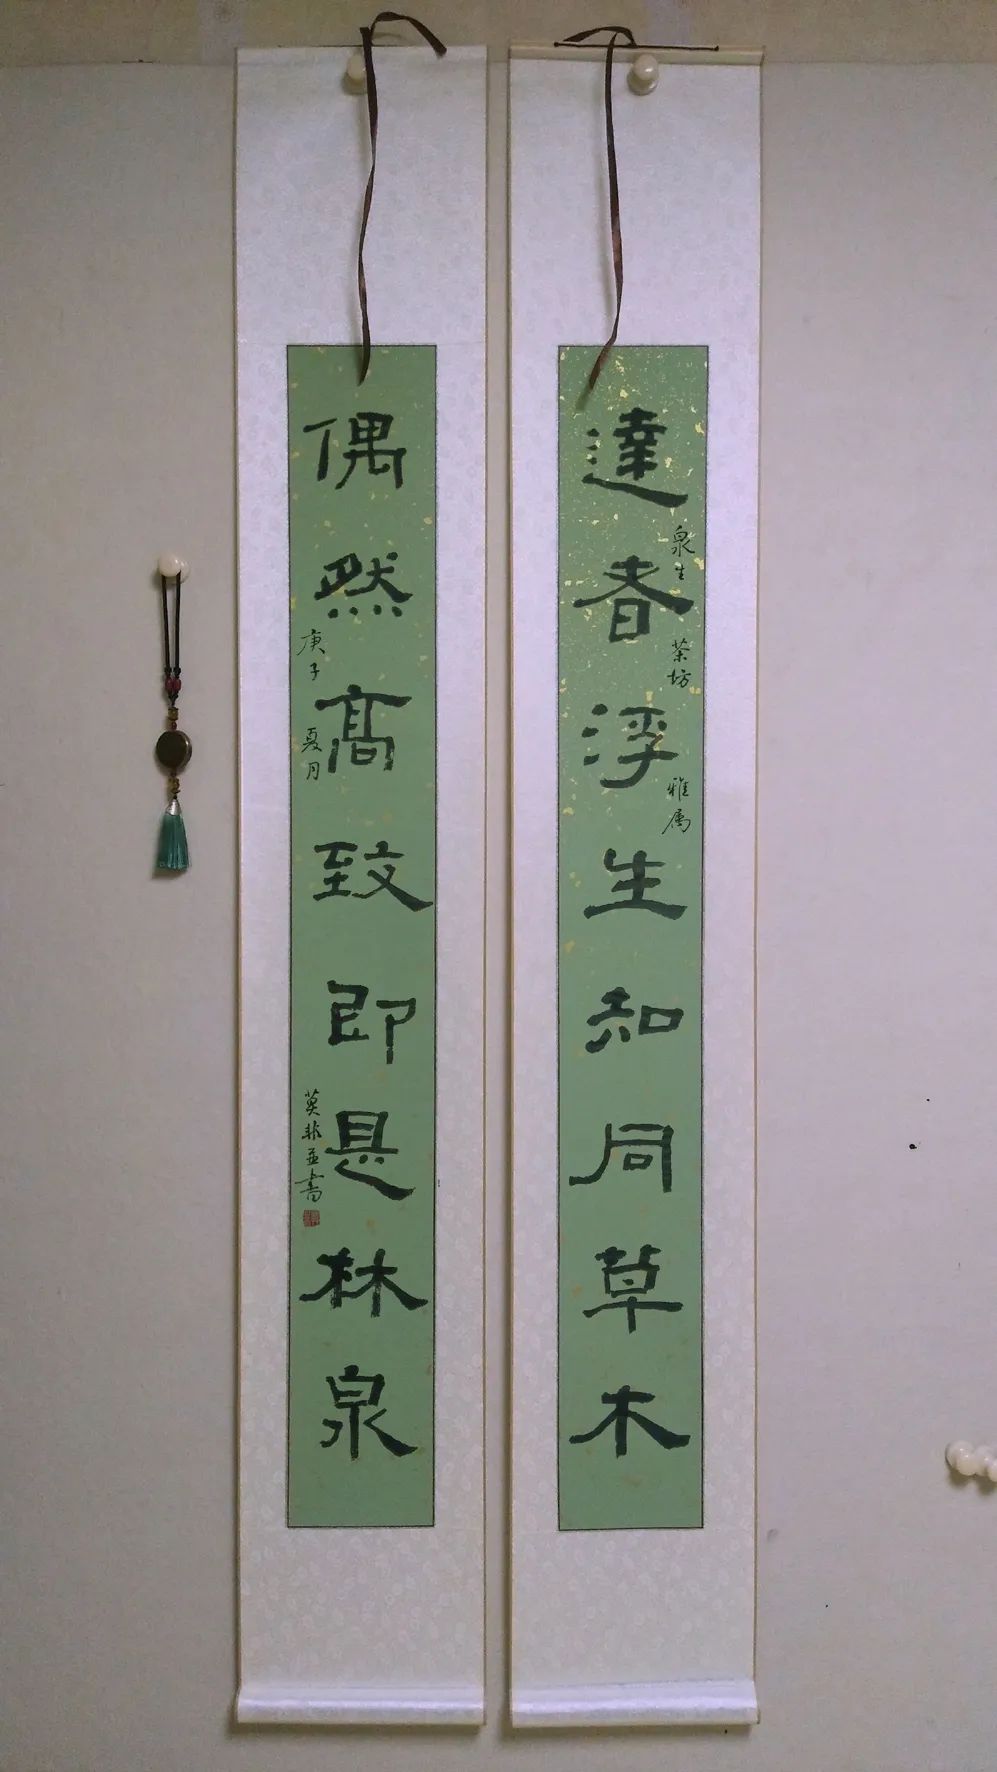 達者浮生知同草木
泉生茶坊雅属
偶然高致即是林泉
庚子夏月莫非並書